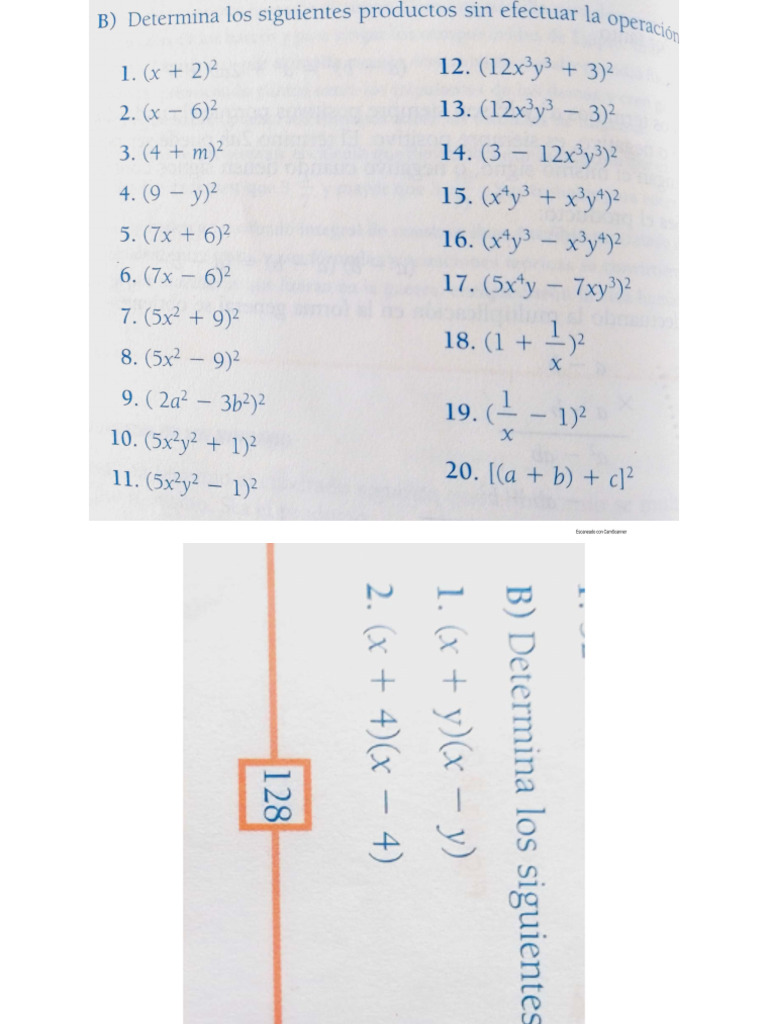 B) Determina los siguientes productos sin efectuar la operación
1. (x + 2)²
2. (x − 6)²
3. (4 + m)²
4. (9 − y)²
5. (7x + 6)²
6. (7x − 6)²
7. (5x² + 9)²
8. (5x² − 9)²
9. ( 2a² − 3b²)²
10. (5x²y² + 1)²
11. (5x²y² − 1)²
12. (12x³y³ + 3)²
13. (12x³y³ − 3)²
14. (3 − 12x³y³)²
15. (x⁴y³ + x³y⁴)²
16. (x⁴y³ − x³y⁴)²
17. (5x⁴y − 7xy³)²
18. (1 + 1/x)²
19. (1/x − 1)²
20. [(a + b) + c]²
Escaneado con CamScanner
B) Determina los siguientes
1. (x + y)(x − y)
2. (x + 4)(x − 4)
128